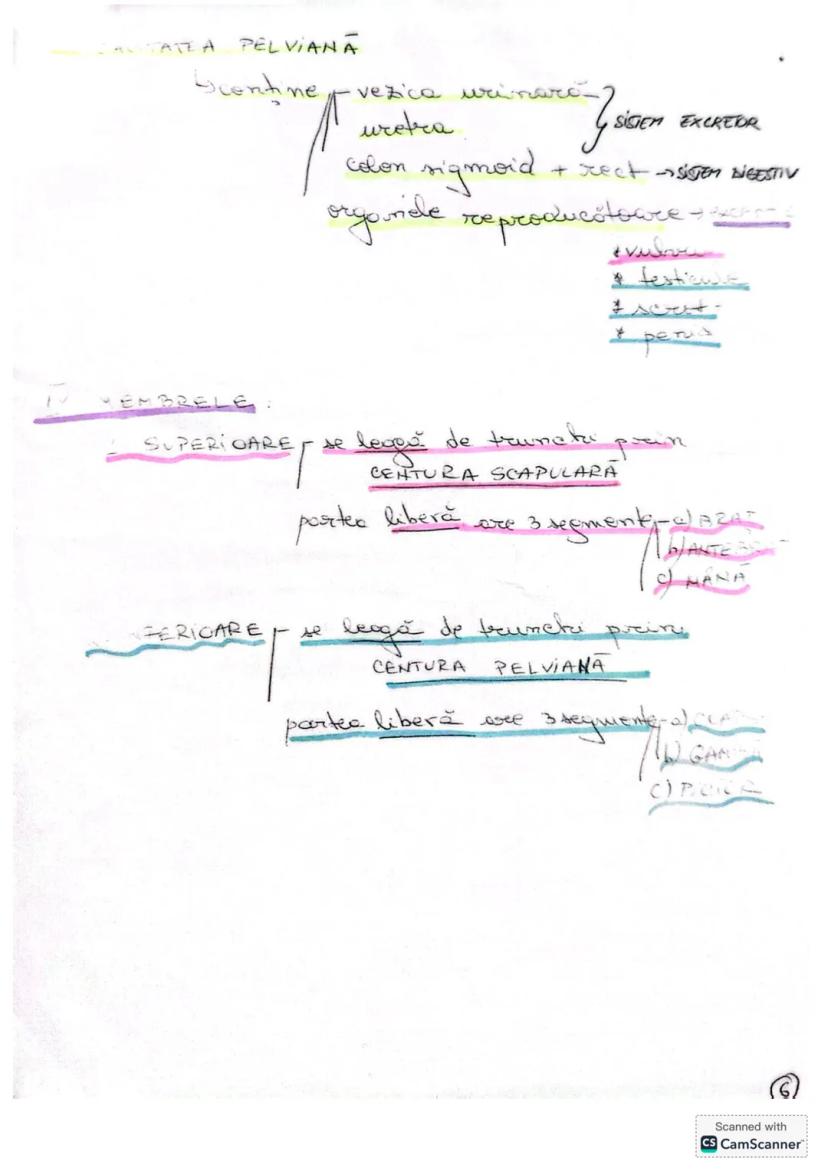 CAVITATEA PELVIANĂ
↳ conține vezica urinară
uretra
SISTEM EXCRETOR
colon sigmoid + rect → SISTEM DIGESTIV
organele reproducătoare →
* vulva
* testicule
* scrot
* penis
IV MEMBRELE:
SUPERIOARE se leagă de trunchi prin
CENTURA SCAPULARĂ
partea liberă are 3 segmente a) BRAȚ
b) ANTEBRAȚ
c) MÂNĂ
FERIOARE se leagă de trunchi prin
CENTURA PELVIANĂ
partea liberă are 3 segmente a)
b) GAMBĂ
c) PICIOR
6
Scanned with
CS CamScanner